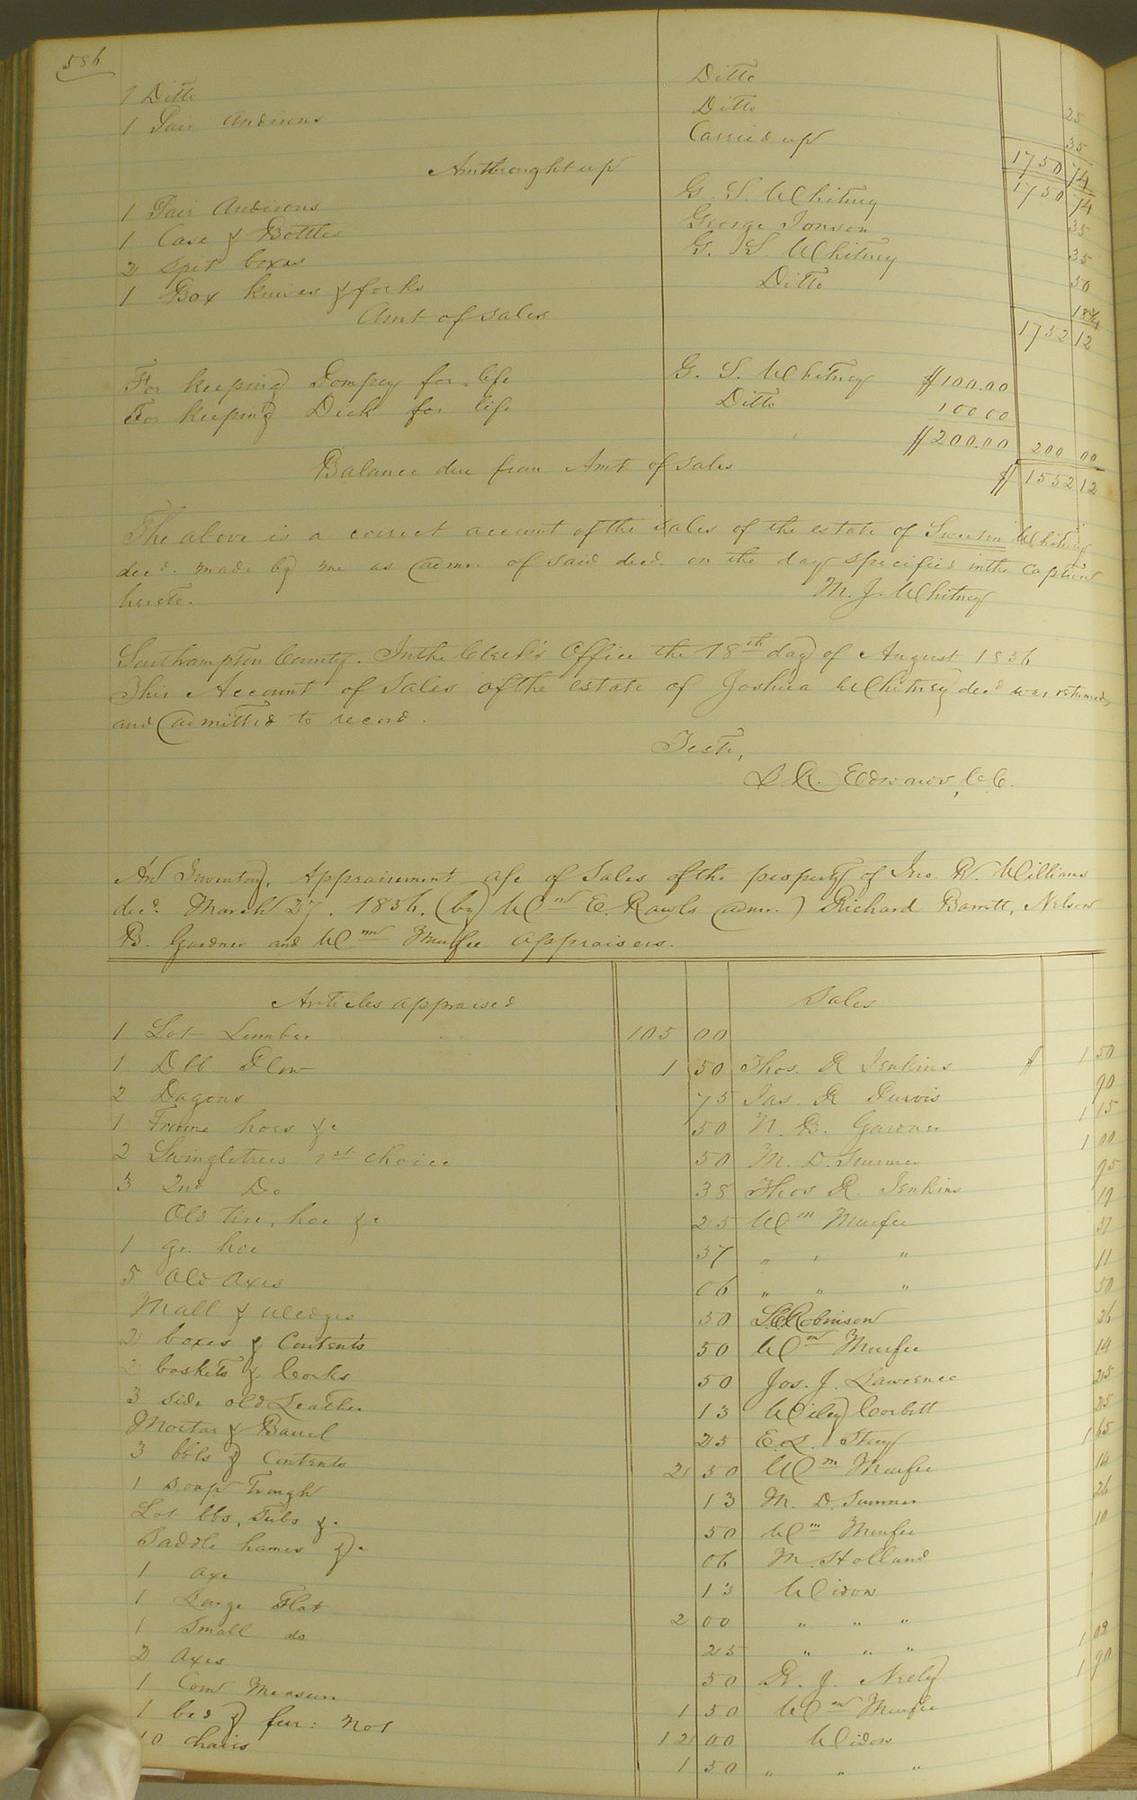 586
1 Ditto Ditto 25
1 Pair Andirons Ditto 35
Carried up 1750 74
Amt brought up 1750 74
1 Pair Andirons G. S. Whitney 35
1 Case & Bottles George Ionson 35
2 Spit boxes G. S. Whitney 50
1 Box knives & forks Ditto 18¾
Amt of sales 1752 12
For keeping Pompey for life G. S. Whitney $100.00
For keeping Dick for life Ditto 100 00
$200.00 200 00
Balance due from Amt of sales $1552 12
The above is a correct account of the sales of the estate of Whitney
decd. made by me as admr. of said decd. on the day specified in the caption
hereto. M. J. Whitney
Southampton County. In the Clerk's Office the 18th day of August 1856
This Account of Sales of the estate of Joshua Whitney decd was returned
and admitted to record.
Teste,
L. R. Edwards, C. C.
An Inventory, Appraisement a/c of Sales of the property of Jno. W. Williams
decd. March 27. 1856. (by Wm E. Rawls admr.) Richard Barrett, Nelson
B. Gardner and Wm Murfee appraisers.
Articles appraised Sales
1 Lot Lumber 105 00
1 Dbl Plow 1 50 Thos. R Jenkins $ 1 50
2 Dagons 75 Jas. R Purvis 90
1 hoes &c 50 N. B. Gardner 1 15
2 Swingletrees 1st choice 50 M. D. Sumner 1 00
3 2nd Do 38 Thos R. Jenkins 95
Old tire, hoe &c 25 Wm Murfee 19
1 gr. hoe 37 " " " 37
5 Old Axes 06 " " " 11
Mall & Wedges 50 Robinson 50
2 boxes & Contents 50 Wm Murfee 26
2 baskets & Corks 50 Jos. J. Lawrence 14
3 side old Leather 13 Wiley Corbett 25
Mortar & Barrel 25 E. L. 25
3 bbls & Contents 2 50 Wm Murfee 1 65
1 Soap Trough 13 M. D. Sumner 14
Lot bbs, Tubs &c 50 Wm Murfee 26
Saddle hames &c 06 M. Holland 10
1 Axe 13 Widow
1 Large Flat 2 00 " " "
1 Small do 25 " " "
2 Axes 50 R. J. Neely 1 02
1 Corn Measure 1 50 Wm Murfee 1 90
1 bed & fur: No 1 12 00 Widow
10 chairs 1 50 " " "